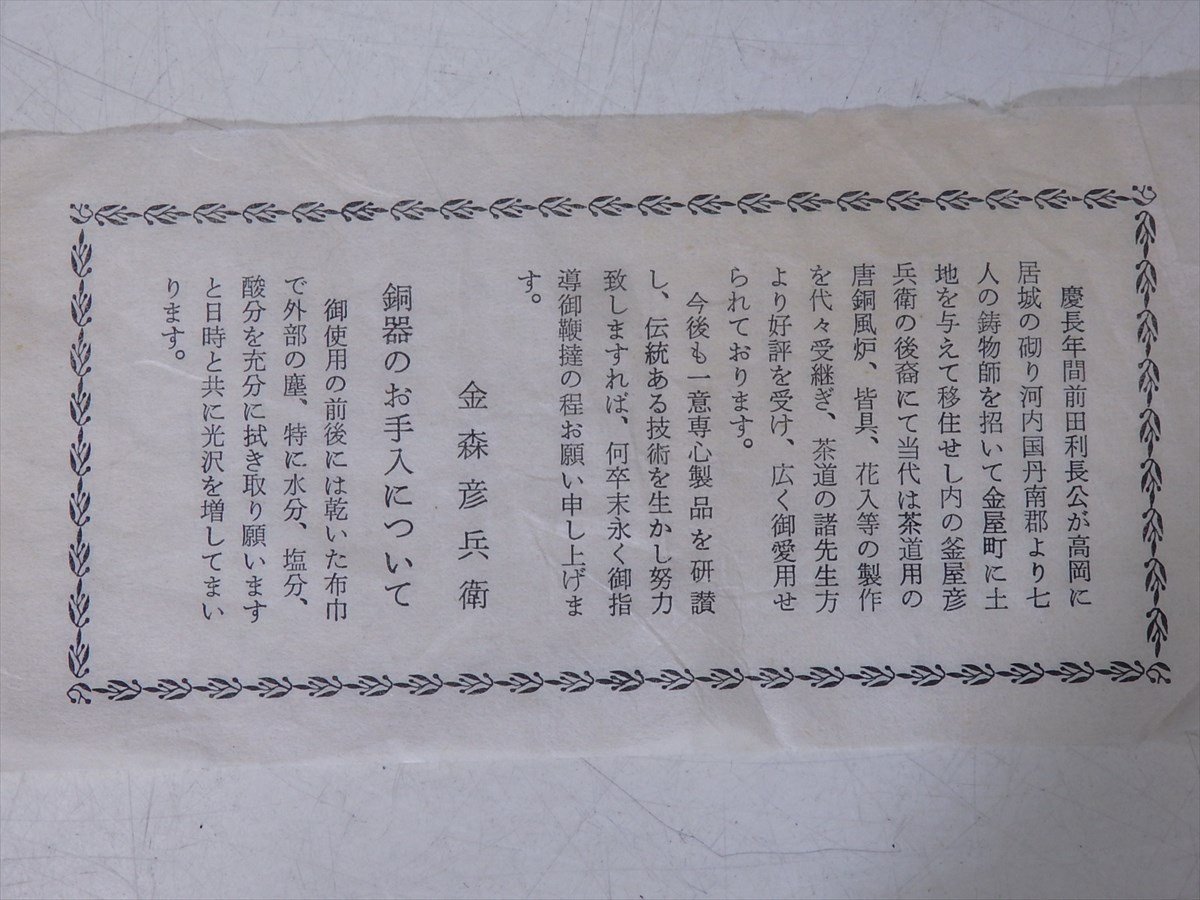 慶長年間前田利長公が高岡に
居城の砌り河内国丹南郡より七
人の鋳物師を招いて金屋町に土
地を与えて移住せし内の釜屋彦
兵衛の後裔にて当代は茶道用の
唐銅風炉、皆具、花入等の製作
を代々受継ぎ、茶道の諸先生方
より好評を受け、広く御愛用せ
られております。
今後も一意専心製品を研讃
し、伝統ある技術を生かし努力
致しますれば、何卒末永く御指
導御鞭撻の程お願い申し上げま
す。
金森彦兵衛
銅器のお手入について
御使用の前後には乾いた布巾
で外部の塵、特に水分、塩分、
酸分を充分に拭き取り願います
と日時と共に光沢を増してまい
ります。